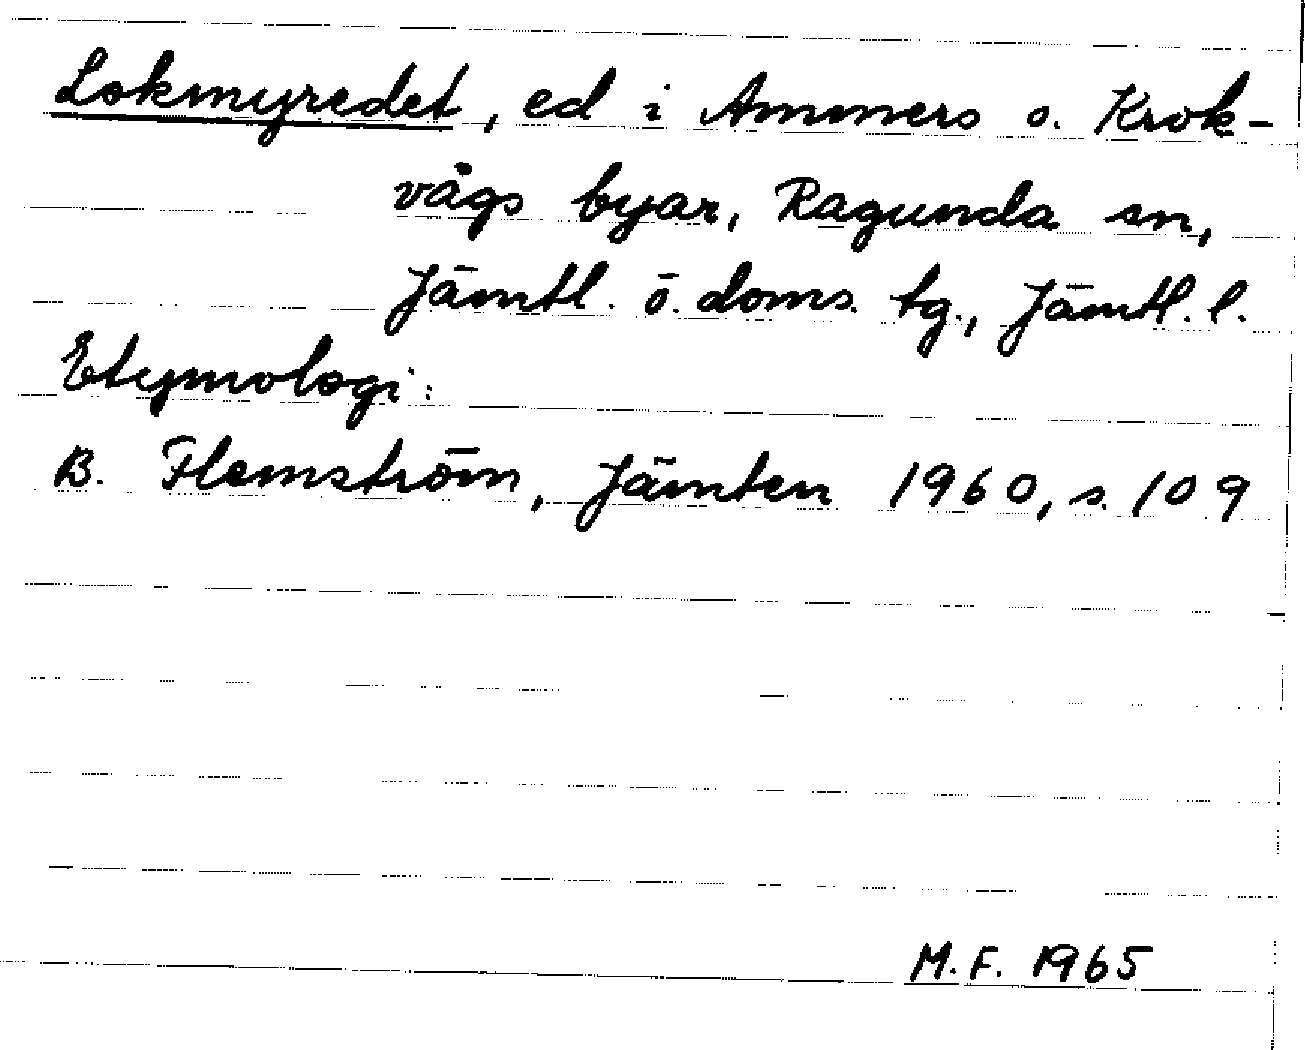 Lokmyredet, ed i Ammers o. Krok-
vågs byar, Ragunda sn,
Jämtl. ö. doms. tg., Jämtl. l.
Etymologi:
B. Flemström, Jämten 1960, s. 109
M.F. 1965